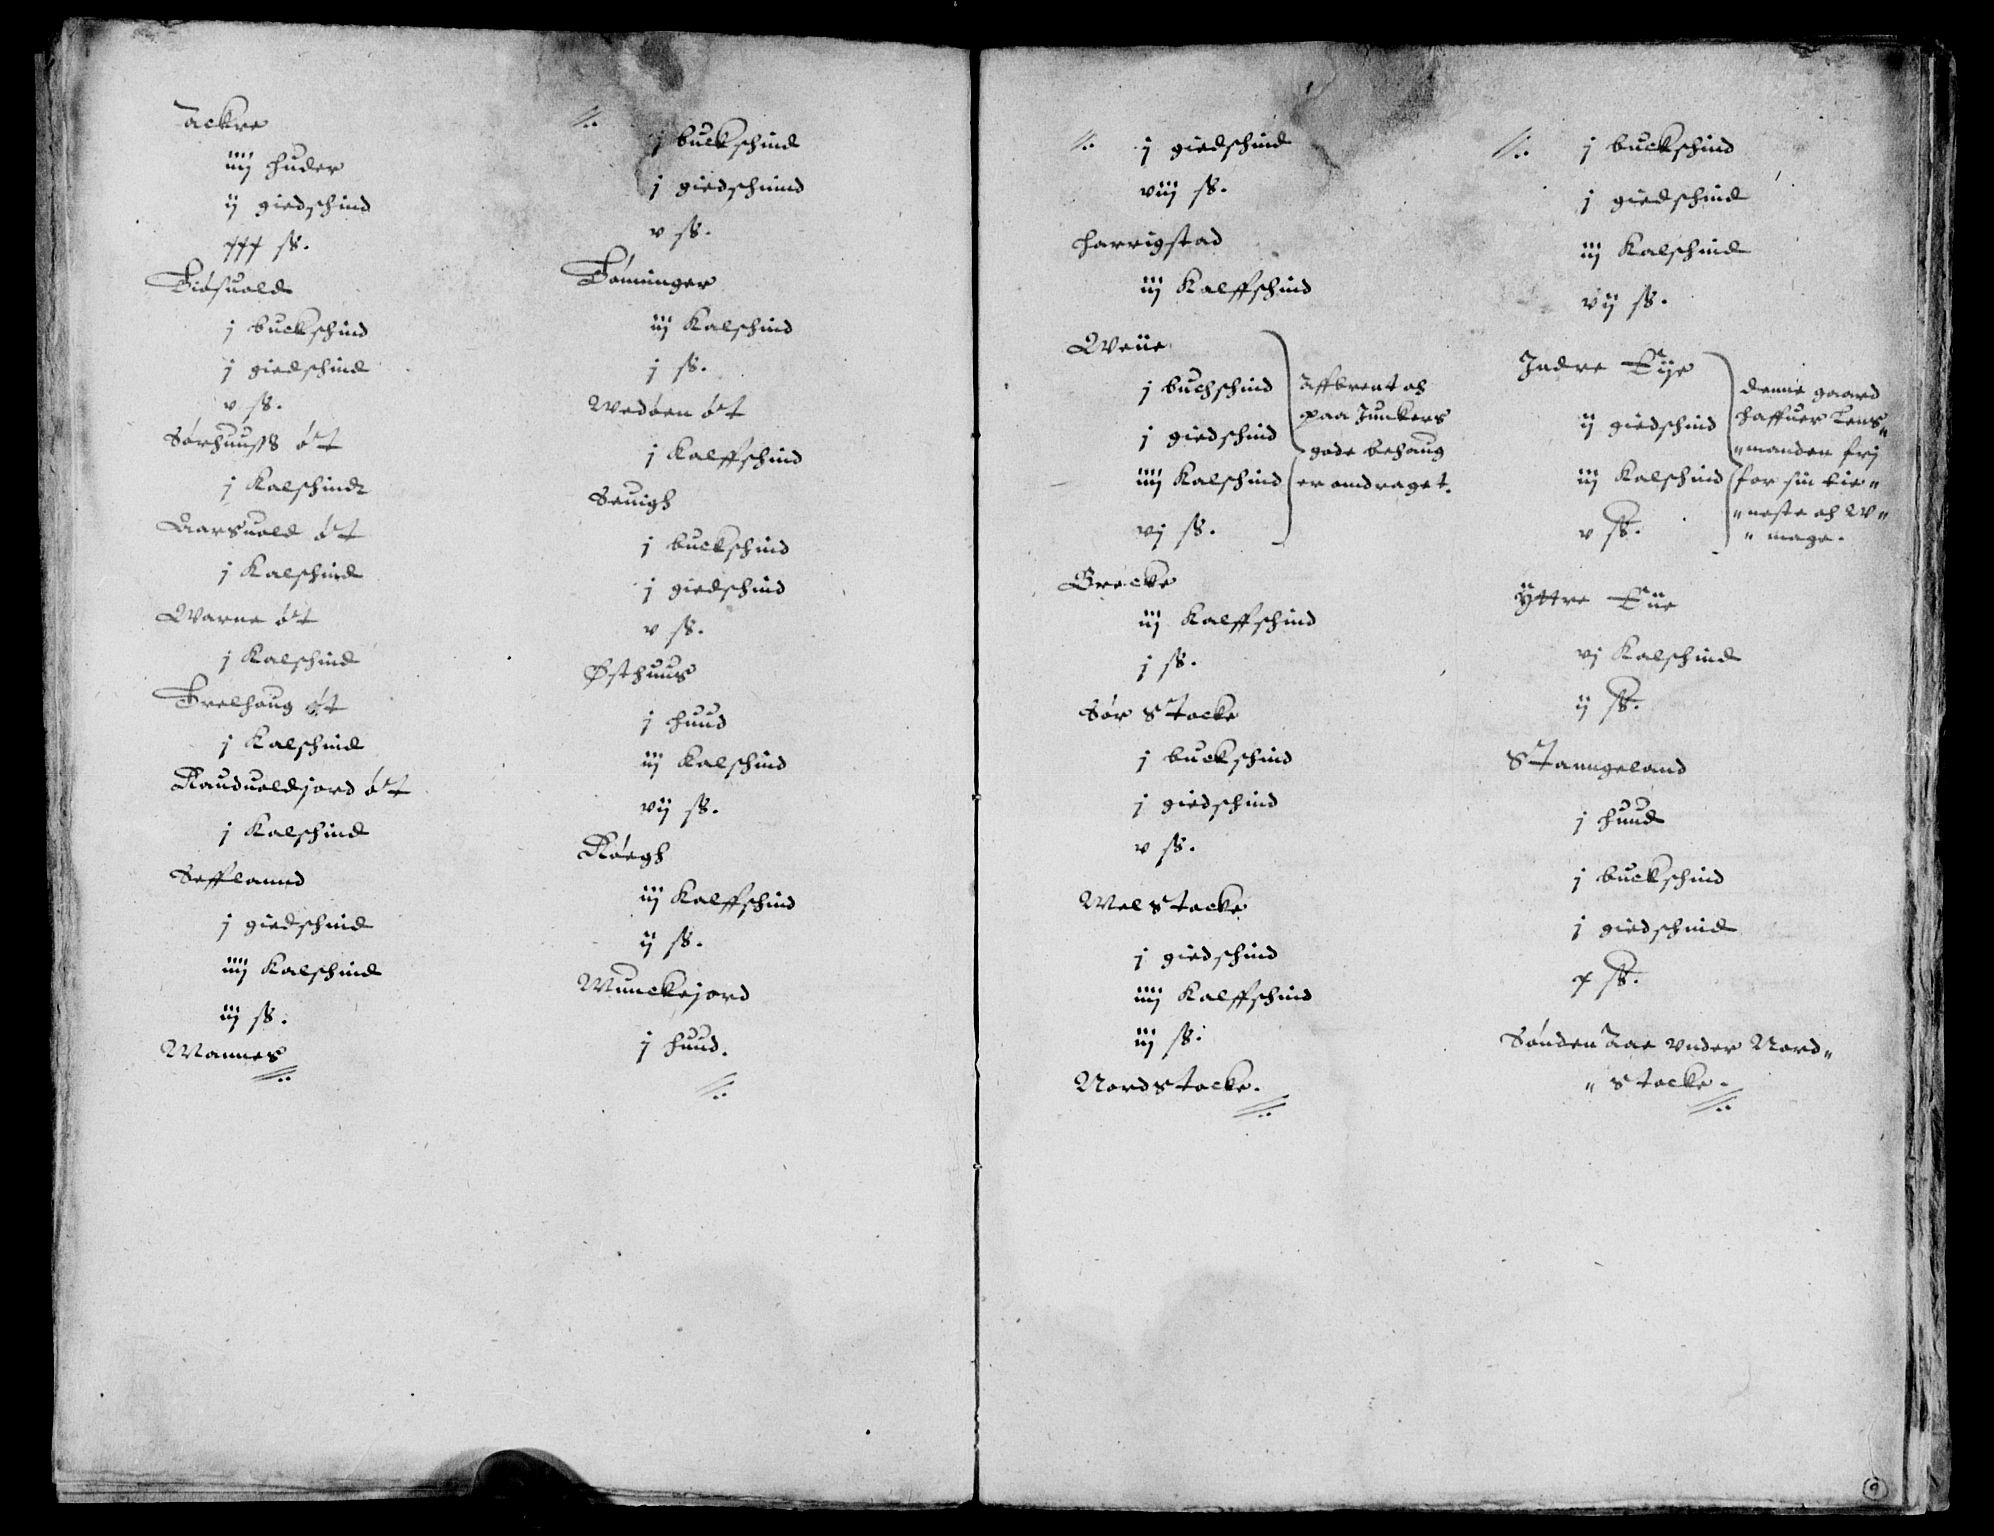 Aackre
iiij huder
ij giedschind
xxx ss.
Tiøsuold
j buckschind
j giedschind
v ss.
Sørhuuss øt
j Kalschind
Aarsuold øt
j Kalschind
Warne øt
j Kalschind
Trelhoug øt
j Kalschind
Rauduoldjord øt
j Kalschind
Sefflannd
j giedschind
iiij Kalschind
iij ss.
Mannes
j buckschind
j giedschinnd
v ss.
Tønninger
iij Kalschind
j ss.
Wedøen øt
j Kalffschind
Seuigh
j buckschind
j giedschind
v ss.
Østhuus
j huud
iij Kalschind
vij ss.
Røegh
iij Kalffschind
ij ss.
Munckejord
j huud.
j giedschind
viij ss.
Harrigstad
iij Kalffschind
Qveiie
j buchschind
j giedschind
iiij Kalschind
vj ss.
Affbrent och
paa Junckers
gode behaug
er omdraget.
Grecke
iij Kalffschind
j ss.
Sør Stocke
j buckschind
j giedschind
v ss.
Mel Stocke
j giedschind
iiij Kalffschind
iij ss.
Nordstocke.
j buckschind
j giedschind
iij Kalschind
vij ss.
Indre Eije
ij giedschind
iij Kalschind
v ss.
denne gaard
haffuer Lens"
"manden frj
for sin tie"
"neste och W"
"mage.
Yttre Eiie
vj Kalschind
ij ss.
Stanngeland
j huud
j buckschind
j giedschind
x ss.
Sønden Aae Vnder Nord"
"Stocke.
9